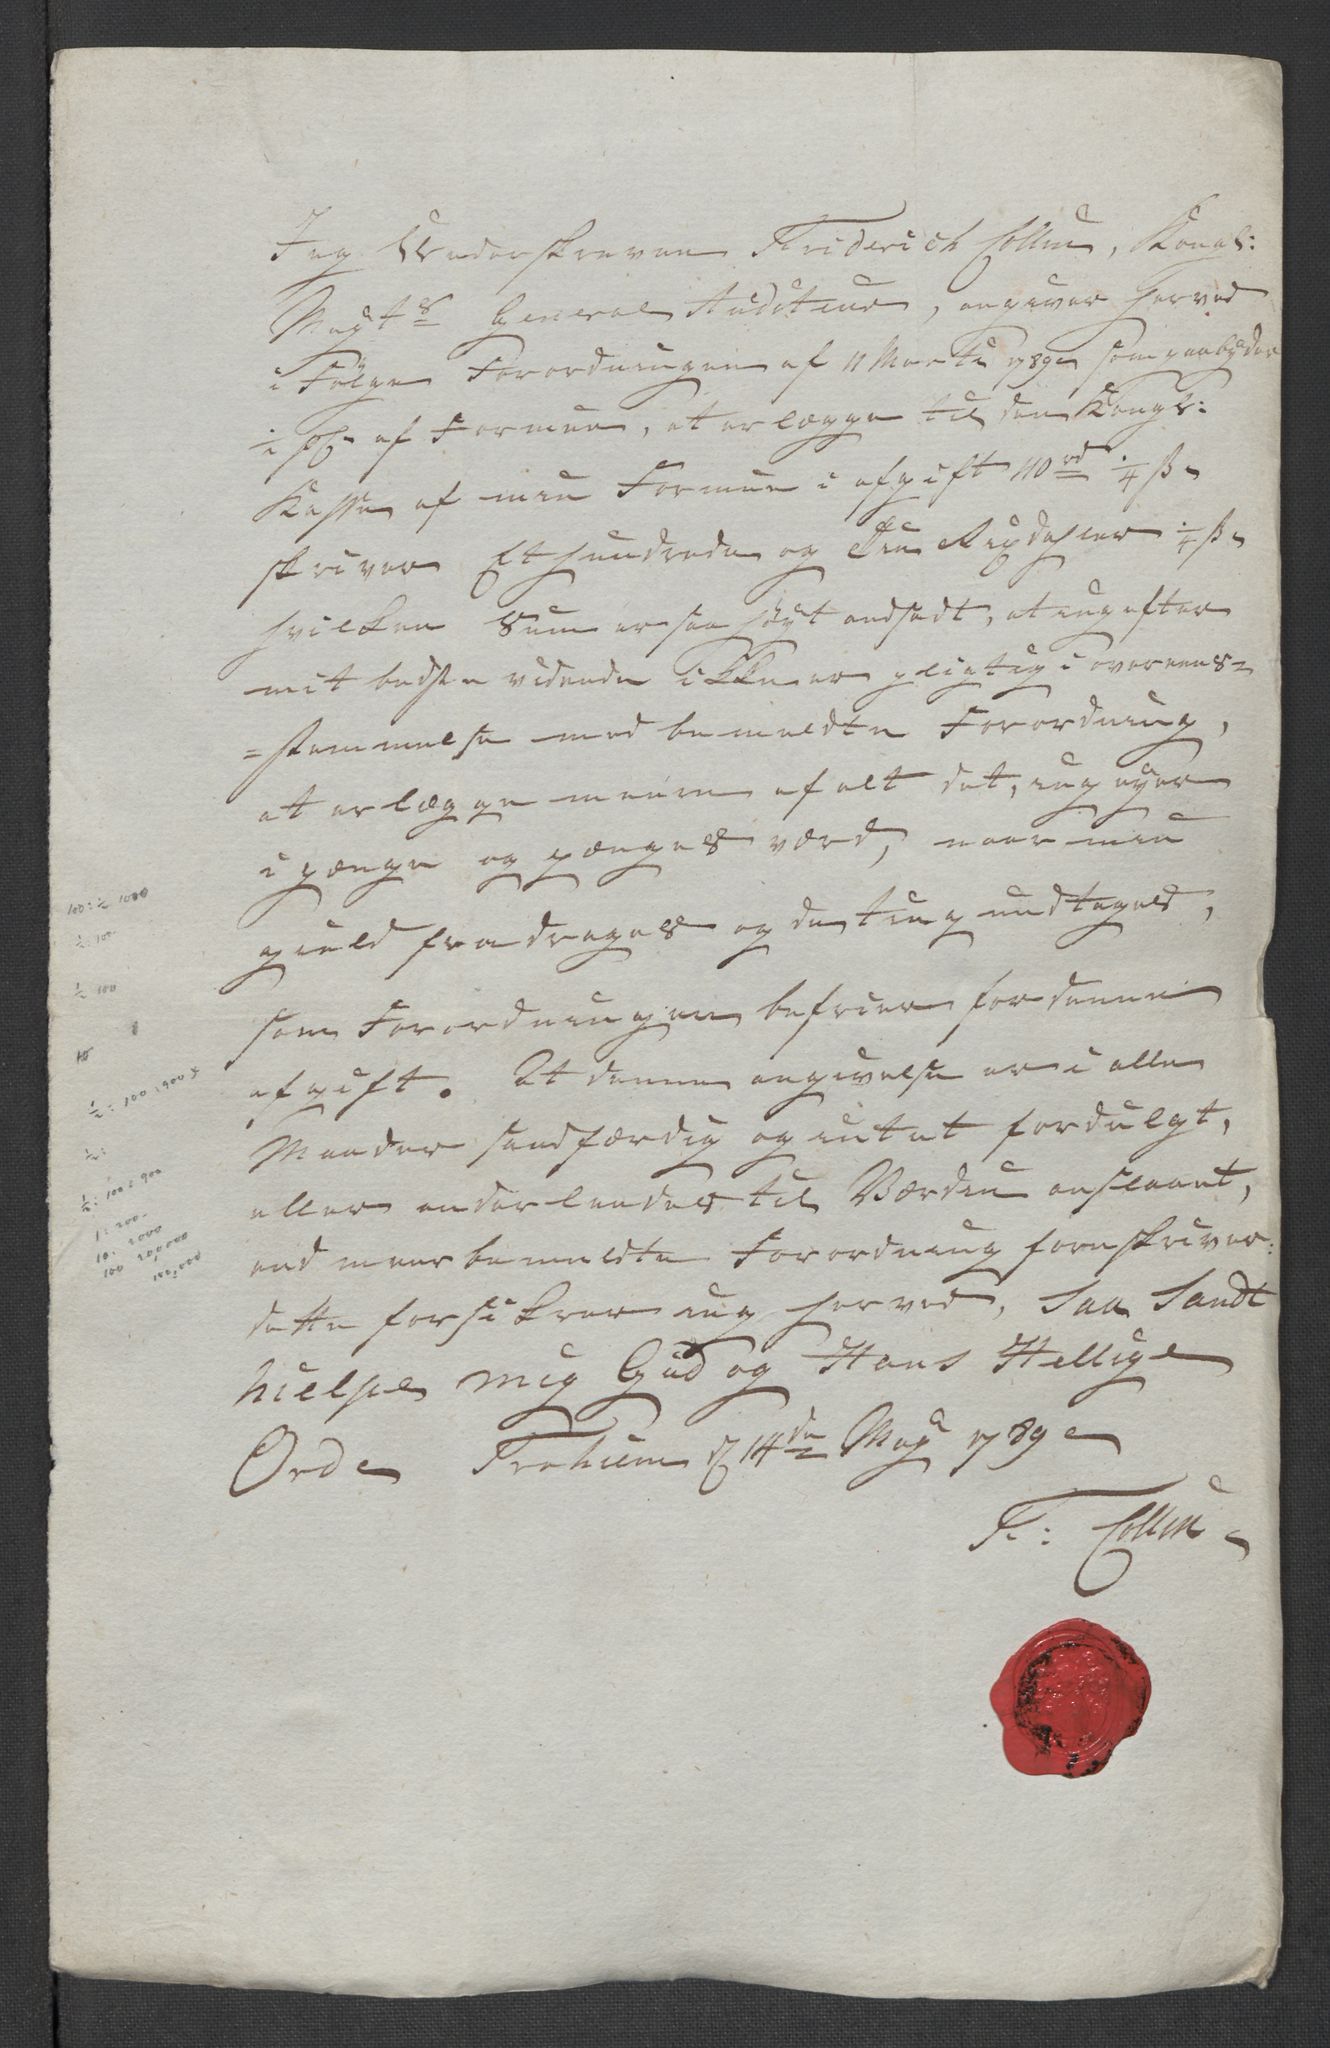 Jeg Underskreven Friderich Collin, Kongl:
Mayts General Auditeur, angiver herved
i Følge Forordningen af 11 Martii 1789 som paabyder
af Formue, at erlægge til den Kongl:
Kasse af min Formue i afgift 110 rd ¼ ß
skriver Et hundrede og Tie Rixdahler ¼ ß
hvilken Sum er saa høyt ansadt, at ieg efter
mit bedste vidende ikke er pligtig i overeens-
=stemmelse med bemeldte Forordning,
at erlægge meere af alt det, ieg eyer
i penge og penges værd, naar min
gield fradrages og de ting undtages,
som Forordningen befrier for denne
afgift. At denne angivelse er i alle
Maader sandfærdig og intet fordulgt,
eller anderleedes til Værdie anslaaet,
end meerbemeldte Forordning foreskriver:
dette forsikrer ieg herved, Saa Sandt
hielpe mig Gud og Hans Hellige
Ord Trohiem d 14de May 1789
F: Collin
100: ½ 1000
½ 100
½ 100
10
½: 100
½:
½: 100: 900
1: 200
10: 2000
100 200,000
100,000